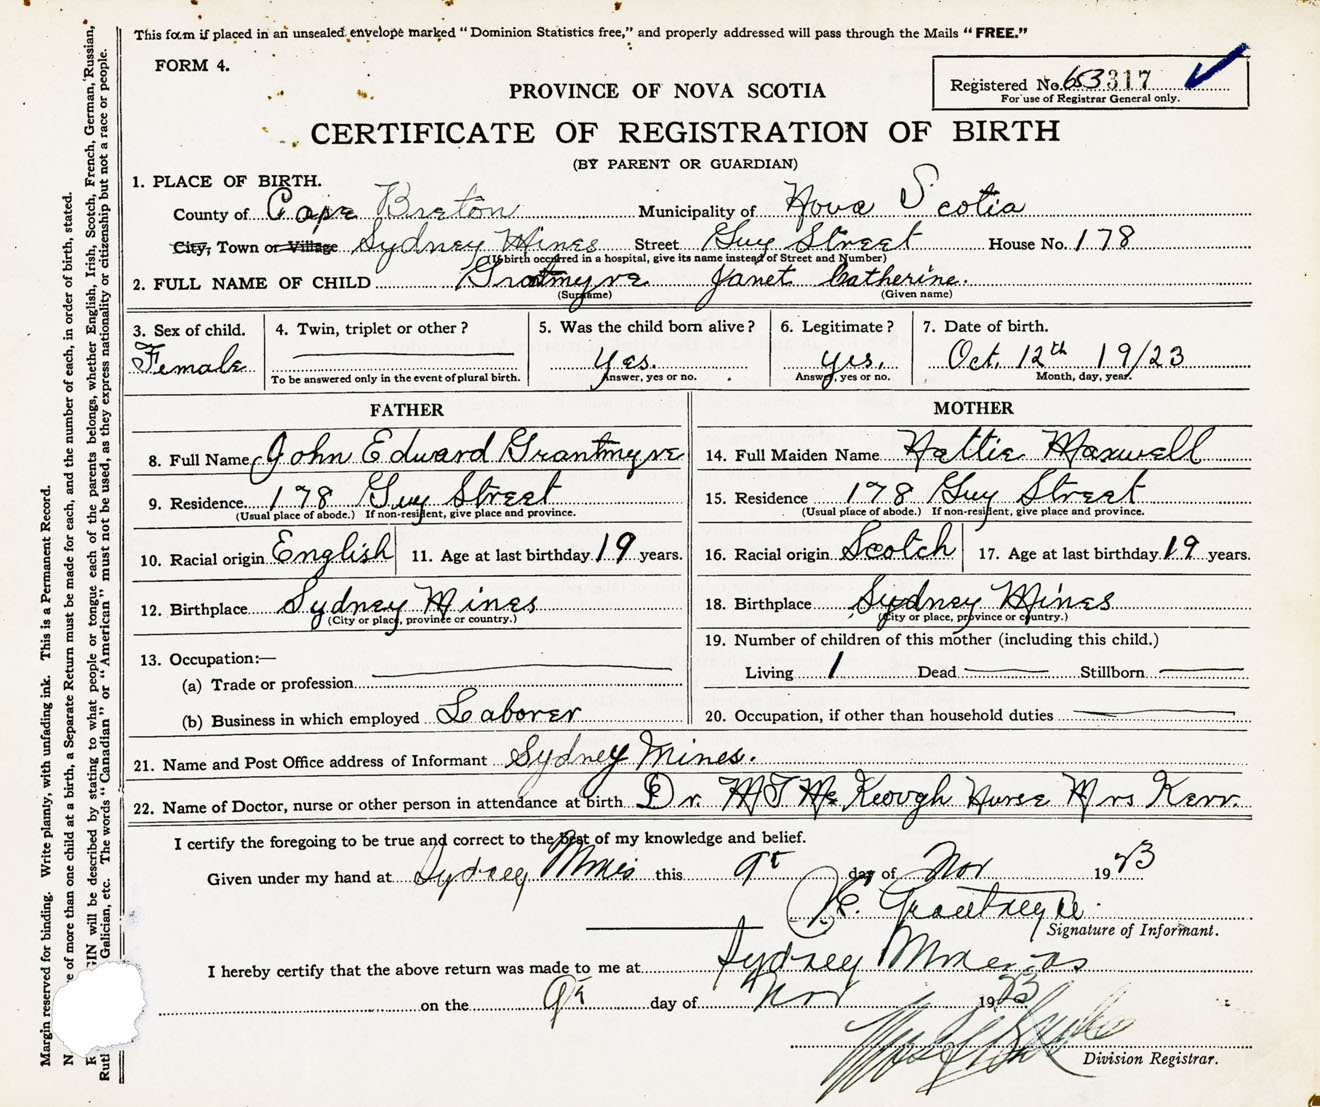 This form if placed in an unsealed envelope marked "Dominion Statistics free," and properly addressed will pass through the Mails "FREE."
FORM 4.
Registered No. 653317
For use of Registrar General only.
PROVINCE OF NOVA SCOTIA
CERTIFICATE OF REGISTRATION OF BIRTH
(BY PARENT OR GUARDIAN)
1. PLACE OF BIRTH.
County of Cape Breton Municipality of Nova Scotia
City, Town or Village Sydney Mines Street Guy Street House No. 178
(If birth occurred in a hospital, give its name instead of Street and Number)
2. FULL NAME OF CHILD Grantmyre Janet Catherine.
(Surname) (Given name)
3. Sex of child. Female
4. Twin, triplet or other?
To be answered only in the event of plural birth.
5. Was the child born alive? Yes.
Answer, yes or no.
6. Legitimate? yes.
Answer, yes or no.
7. Date of birth.
Oct. 12th 19/23
Month, day, year.
FATHER
8. Full Name John Edward Grantmyre
9. Residence 178 Guy Street
(Usual place of abode.) If non-resident, give place and province.
10. Racial origin English 11. Age at last birthday 19 years.
12. Birthplace Sydney Mines
(City or place, province or country.)
13. Occupation:—
(a) Trade or profession
(b) Business in which employed Laborer
MOTHER
14. Full Maiden Name Hattie Maxwell
15. Residence 178 Guy Street
(Usual place of abode.) If non-resident, give place and province.
16. Racial origin Scotch 17. Age at last birthday 19 years.
18. Birthplace Sydney Mines
(City or place, province or country.)
19. Number of children of this mother (including this child.)
Living 1 Dead Stillborn
20. Occupation, if other than household duties
21. Name and Post Office address of Informant Sydney Mines.
22. Name of Doctor, nurse or other person in attendance at birth Dr. McKeough Nurse Mrs Kerr.
I certify the foregoing to be true and correct to the best of my knowledge and belief.
Given under my hand at Sydney Mines this 9t day of Nov 1923
Grantmyre
Signature of Informant.
I hereby certify that the above return was made to me at Sydney Mines
on the 9t day of Nov 1923
Division Registrar.
Margin reserved for binding. Write plainly, with unfading ink. This is a Permanent Record.
of more than one child at a birth, a Separate Return must be made for each, and the number of each, in order of birth, stated.
will be described by stating to what people or tongue each of the parents belongs, whether English, Irish, Scotch, French, German, Russian,
Galician, etc. The words "Canadian" or "American" must not be used, as they express nationality or citizenship but not a race or people.